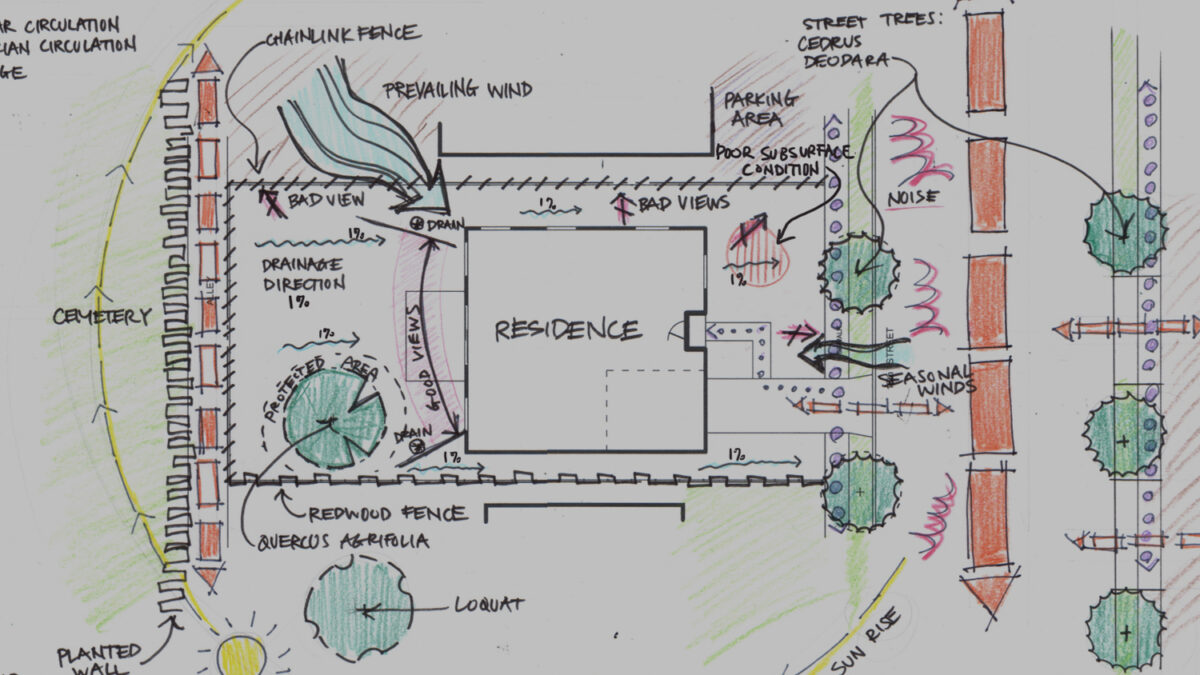 AR CIRCULATION
IAN CIRCULATION
GE
CHAINLINK FENCE
PREVAILING WIND
PARKING
AREA
STREET TREES:
CEDRUS
DEODARA
POOR SUBSURFACE
CONDITION
NOISE
BAD VIEW
BAD VIEWS
1%
DRAIN
1%
DRAINAGE
DIRECTION
1%
1%
1%
CEMETERY
ALLEY
GOOD VIEWS
RESIDENCE
STREET
SEASONAL
WINDS
PROTECTED AREA
DRAIN
1%
1%
REDWOOD FENCE
QUERCUS AGRIFOLIA
LOQUAT
PLANTED
WALL
SUN RISE